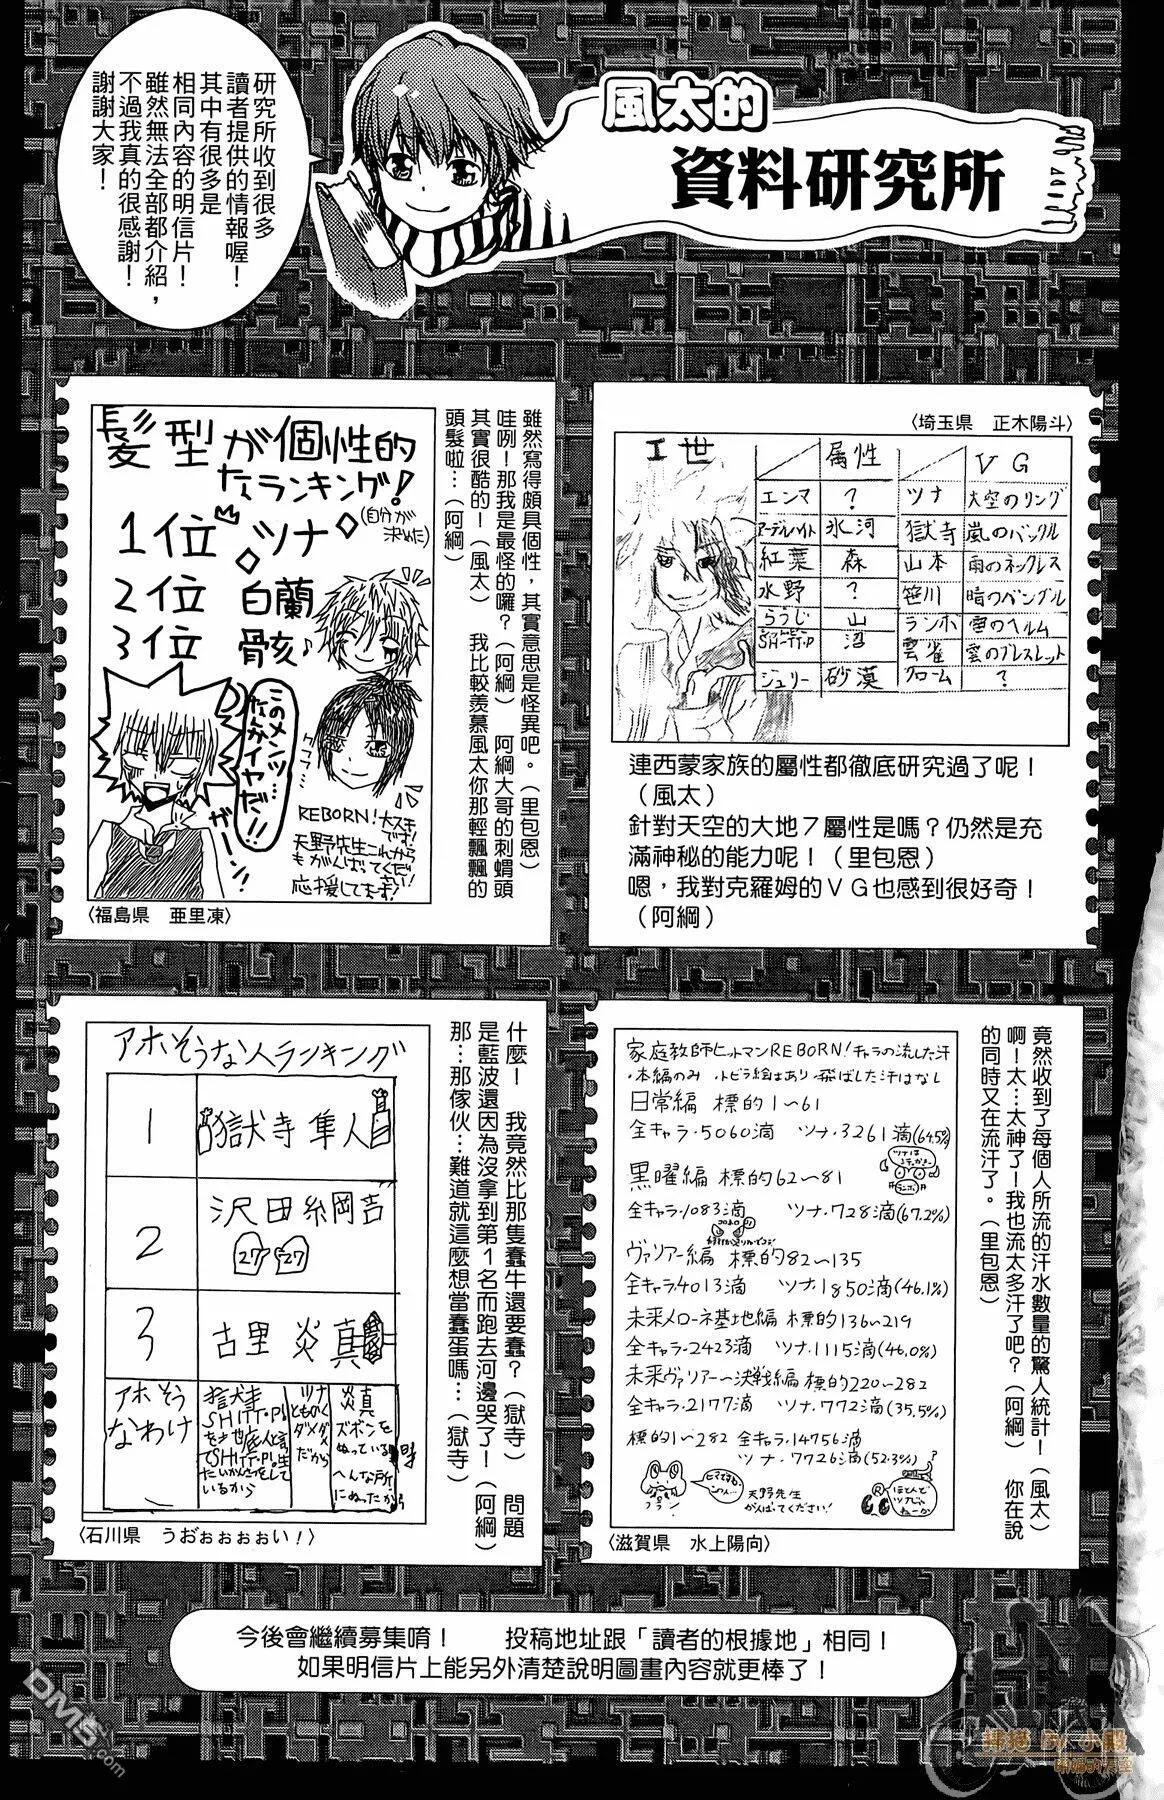 風太的
資料研究所
研究所收到很多
讀者提供的情報喔！
其中有很多是
相同內容的明信片！
雖然無法全部都介紹，
不過我真的很感謝！
謝謝大家！
〈埼玉県　正木陽斗〉
I世
属性
VG
エンマ　？　ツナ　大空のリング
アーデルハイト　氷河　獄寺　嵐のバックル
紅葉　森　山本　雨のネックレス
水野　？　笹川　晴のバングル
らうじ　山　ランボ　雷のヘルム
SHITT・P　沼　雲雀　雲のブレスレット
ジュリー　砂漠　クローム　？
連西蒙家族的屬性都徹底研究過了呢！
（風太）
針對天空的大地７屬性是嗎？仍然是充
滿神秘的能力呢！（里包恩）
嗯，我對克羅姆的ＶＧ也感到很好奇！
（阿綱）
雖然寫得頗具個性，其實意思是怪異吧。（里包恩）
哇咧！那我是最怪的囉？（阿綱）　阿綱大哥的刺蝟頭
其實很酷的！（風太）　我比較羨慕風太你那輕飄飄的
頭髮啦…（阿綱）
髪型が個性的
なランキング！
(自分が
決めた)
1位 ツナ
2位 白蘭
3位 骸♪
このメンツ…
なんかイヤだ!!
ガーン
REBORN！大スキです
天野先生これから
もがんばってください！
応援してます！
〈福島県　亜里凍〉
竟然收到了每個人所流的汗水數量的驚人統計！（風太）
啊！太…太神了！我也流太多汗了吧？（阿綱）　你在說
的同時又在流汗了。（里包恩）
家庭教師ヒットマンREBORN！キャラの流した汗
・本編のみ ・トビラ絵はあり ・飛ばした汗はなし
日常編 標的1〜61
全キャラ・5060滴 ツナ・3261滴(64.5%)
黒曜編 標的62〜81
全キャラ・1083滴 ツナ・728滴(67.2%)
ヴァリアー編 標的82〜135
全キャラ4013滴 ツナ・1850滴(46.1%)
未来メローネ基地編 標的136〜219
全キャラ・2423滴 ツナ・1115滴(46.0%)
未来ヴァリアー〜決戦編 標的220〜282
全キャラ・2177滴 ツナ・772滴(35.5%)
標的1〜282 全キャラ・14756滴
ツナ・7726滴(52.3%)
天野先生
がんばってください！
ほとんど
ツナじゃ
ねーか
〈滋賀県　水上陽向〉
什麼！　我竟然比那隻蠢牛還要蠢？（獄寺）　問題
是藍波還因為沒拿到第１名而跑去河邊哭了！（阿綱）
那…那傢伙…難道就這麼想當蠢蛋嗎…（獄寺）
アホそうな人ランキング
1 獄寺 隼人
2 沢田綱吉
27 27
3 古里 炎真
アホそう
なわけ
ツナ
とにかく
ダメダメ
だから
炎真
ズボンを
ぬっている時
へんな所
にぬったから
〈石川県　うおぉぉぉぉい！〉
今後會繼續募集唷！　投稿地址跟「讀者的根據地」相同！
如果明信片上能另外清楚說明圖畫內容就更棒了！